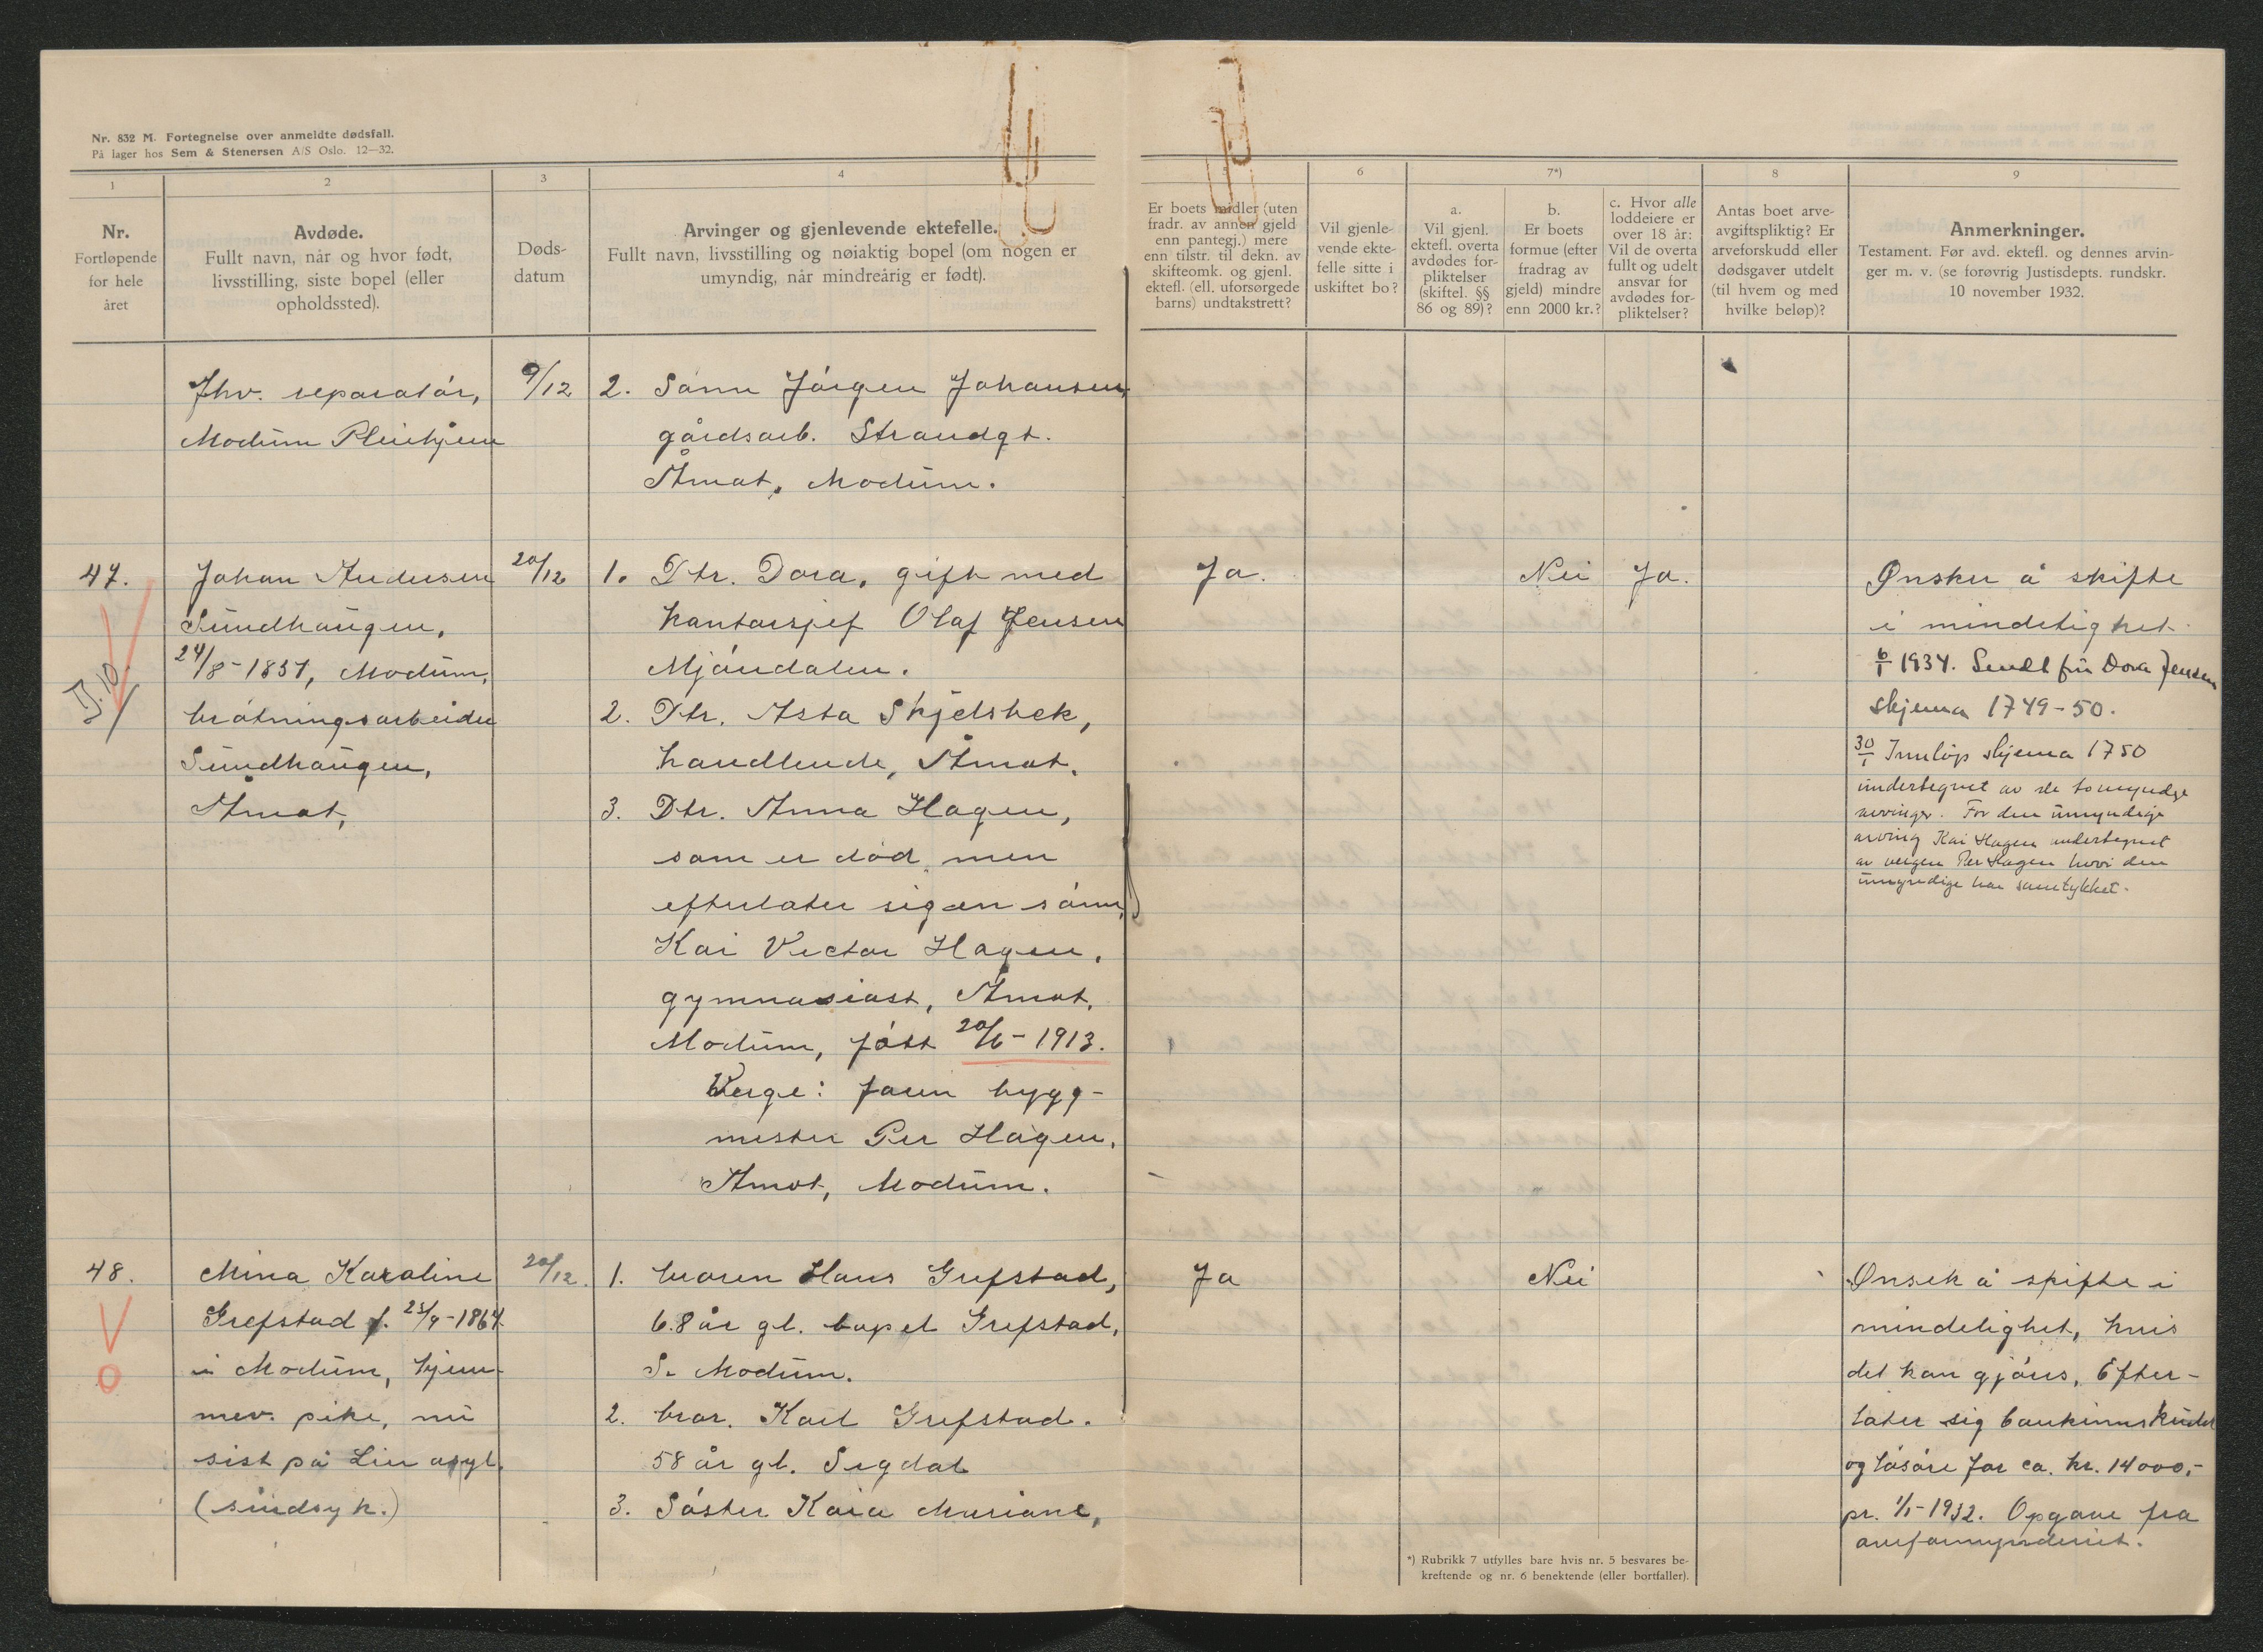 Nr. 832 M. Fortegnelse over anmeldte dødsfall.
På lager hos Sem & Stenersen A/S Oslo. 12—32.
1
Nr.
Fortløpende
for hele
året
2
Avdøde.
Fullt navn, når og hvor født,
livsstilling, siste bopel (eller
opholdssted).
3
Døds-
datum
4
Arvinger og gjenlevende ektefelle.
Fullt navn, livsstilling og nøiaktig bopel (om nogen er
umyndig, når mindreårig er født).
5
Er boets midler (uten
fradr. av annen gjeld
enn pantegj.) mere
enn tilstr. til dekn. av
skifteomk. og gjenl.
ektefl. (ell. uforsørgede
barns) undtakstrett?
6
Vil gjenle-
vende ekte-
felle sitte i
uskiftet bo?
7*)
a.
Vil gjenl.
ektefl. overta
avdødes for-
pliktelser
(skiftel. §§
86 og 89)?
b.
Er boets
formue (efter
fradrag av
gjeld) mindre
enn 2000 kr.?
c. Hvor alle
loddeiere er
over 18 år:
Vil de overta
fullt og udelt
ansvar for
avdødes for-
pliktelser?
8
Antas boet arve-
avgiftspliktig? Er
arveforskudd eller
dødsgaver utdelt
(til hvem og med
hvilke beløp)?
9
Anmerkninger.
Testament. Før avd. ektefl. og dennes arvin-
ger m. v. (se forøvrig Justisdepts. rundskr.
10 november 1932.
Fhv. reparatør,
Modum Pleiehjem
9/12
2. Sønn Jørgen Johansen
gårdsarb. Strandgt.
Åmot, Modum.
47.
Johan Andersen
Sundhaugen,
24/8-1851, Modum,
brøtningsarbeider
Sundhaugen,
Åmot,
20/12
1. Dtr. Dora, gift med
kontorsjef Olaf Jensen
Mjøndalen.
2. Dtr. Asta Skjelsbek,
handlende, Åmot.
3. Dtr. Anna Hagen,
som er død, men
efterlater sig en sønn,
Kai Victor Hagen,
gymnasiast, Åmot,
Modum, født 20/6-1913.
Verge: faren bygg-
mester Per Hagen,
Åmot, Modum.
Ja.
Nei
Ja.
Ønsker å skifte
i mindelighet.
6/1 1934. Sendt fru Dora Jensen
skjema 1749-50.
30/1 Innløp skjema 1750
undertegnet av de to myndge
arvinger. For den umyndige
arving Kai Hagen undertegnet
av vergen Per Hagen hvori den
umyndige har samtykket.
48.
Mina Karoline
Grefstad f. 23/9-1864
i Modum, hjem-
mev. pike, nu
sist på Lier asyl.
(sindsyk.)
20/12.
1. broren Hans Grefstad,
68 år gl. bopel Grefstad,
S. Modum.
2. bror. Karl Grefstad.
58 år gl. Sigdal
3. Søster Kaia Mariane,
Ja
Nei
Ønsek å skifte i
mindelighet, hvis
det kan gjøres, Efter-
later sig bankinnskudd
og løsøre for ca. kr. 14000,-
pr. 1/1-1932. Opgave fra
overformynderiet.
*) Rubrikk 7 utfylles bare hvis nr. 5 besvares be-
kreftende og nr. 6 benektende (eller bortfaller).